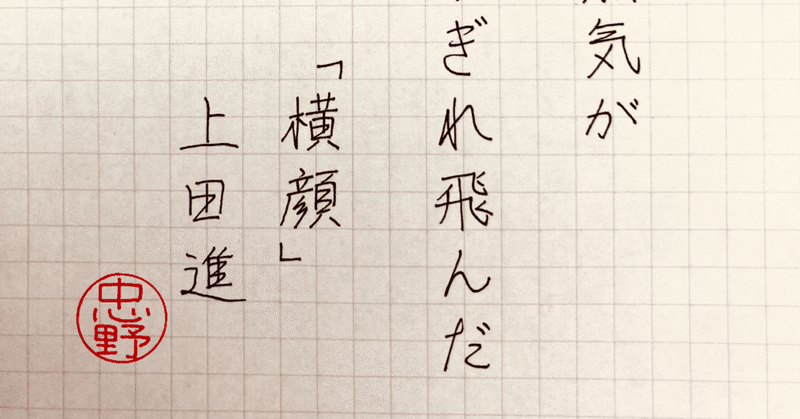 気が
ぎれ飛んだ
「横顔」
上田進
忠野